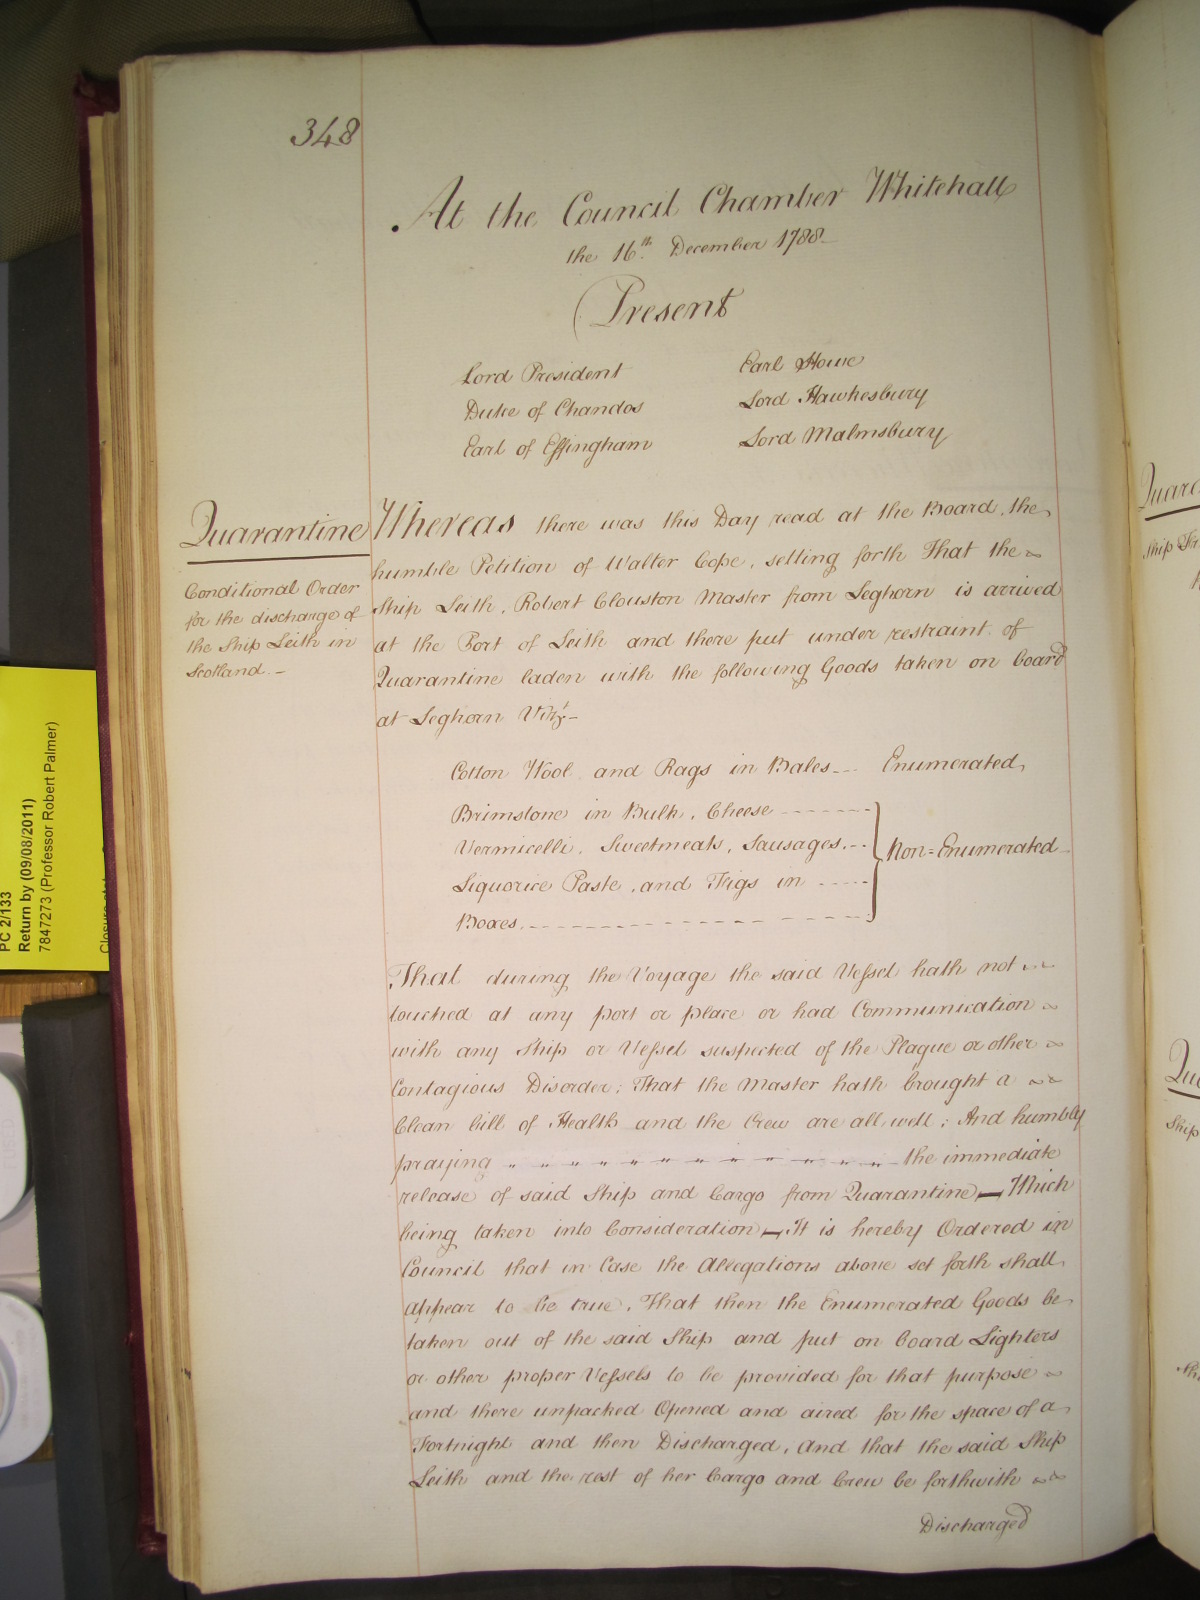 348
At the Council Chamber Whitehall
the 16th. December 1788
Present
Lord President
Duke of Chandos
Earl of Effingham
Earl Howe
Lord Hawkesbury
Lord Malmsbury
Quarantine
Conditional Order
for the discharge of
the Ship Leith in
Scotland. -
Whereas there was this Day read at the Board, the
humble Petition of Walter Cope, setting forth That the
Ship Leith, Robert Clouston Master from Leghorn is arrived
at the Port of Leith and there put under restraint of
Quarantine laden with the following Goods taken on board
at Leghorn Vizt. -
Cotton Wool and Rags in Bales --- Enumerated,
Brimstone in Bulk, Cheese
Vermicelli, Sweetmeats, Sausages,
Liquorice Paste, and Figs in
Boxes,
Non-Enumerated
That during the Voyage the said Vessel hath not
touched at any port or place or had Communication
with any Ship or Vessel suspected of the Plague or other
Contagious Disorder; That the Master hath brought a
Clean bill of Health and the Crew are all well; And humbly
praying " " " " " " " " " " " " " the immediate
release of said Ship and Cargo from Quarantine, — Which
being taken into Consideration — It is hereby Ordered in
Council that in Case the Allegations above set forth shall
appear to be true, That then the Enumerated Goods be
taken out of the said Ship and put on board Lighters
or other proper Vessels to be provided for that purpose
and there unpacked Opened and aired for the space of a
Fortnight and then Discharged, and that the said Ship
Leith and the rest of her Cargo and Crew be forthwith
Discharged
PC 2/133
Return by (09/08/2011)
7847273 (Professor Robert Palmer)
Quara
Ship
Qua
Ship